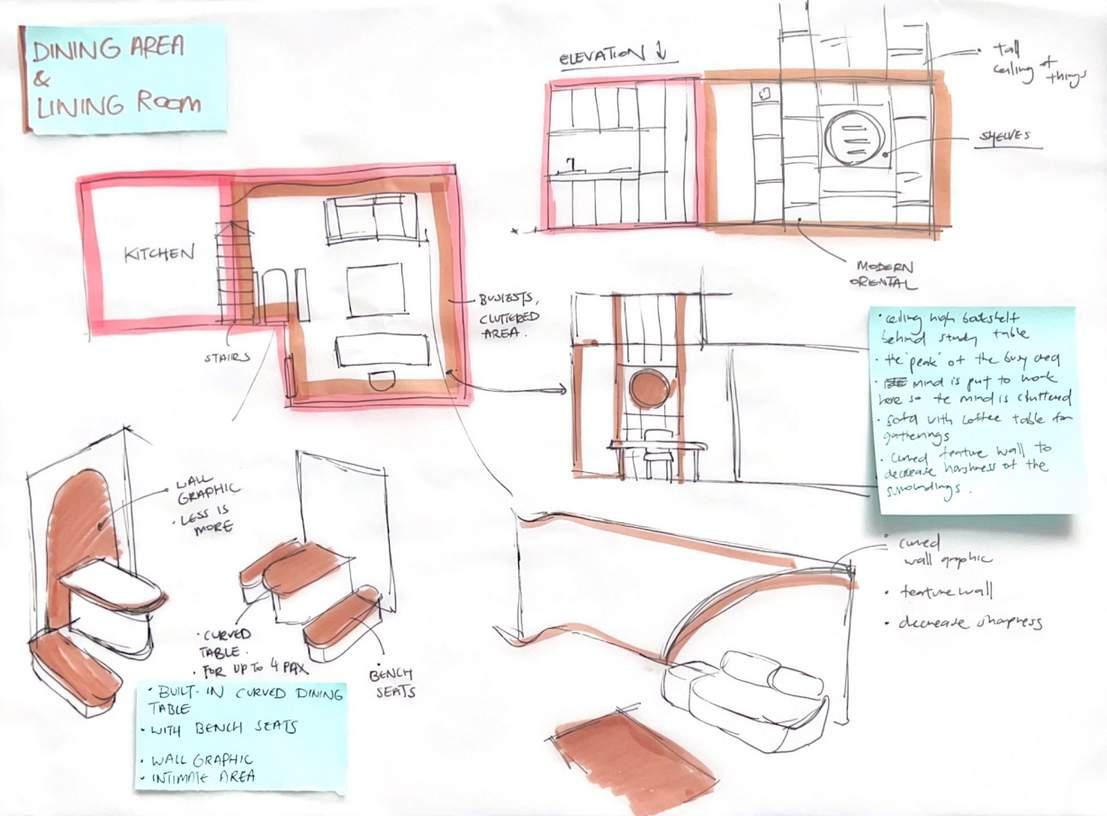 DINING AREA
&
LINING ROOM
ELEVATION ↓
• tall
ceiling of
things
SHELVES
MODERN
ORENTAL
KITCHEN
STAIRS
BUSIESTS,
CLUTTERED
AREA.
• ceiling high bookshelf
behind study table
• the 'peak' of the busy area
• mind is put to work
here so the mind is cluttered
• Sofa with coffee table for
gatherings
• Curved feature wall to
decrease harshness of the
surroundings.
WALL
GRAPHIC
• LESS IS
MORE
• CURVED
TABLE.
• FOR UP TO 4 PAX
BENCH
SEATS
• BUILT-IN CURVED DINING
TABLE
• WITH BENCH SEATS
• WALL GRAPHIC
• INTIMATE AREA
• curved
wall graphic
• feature wall
• decrease sharpness